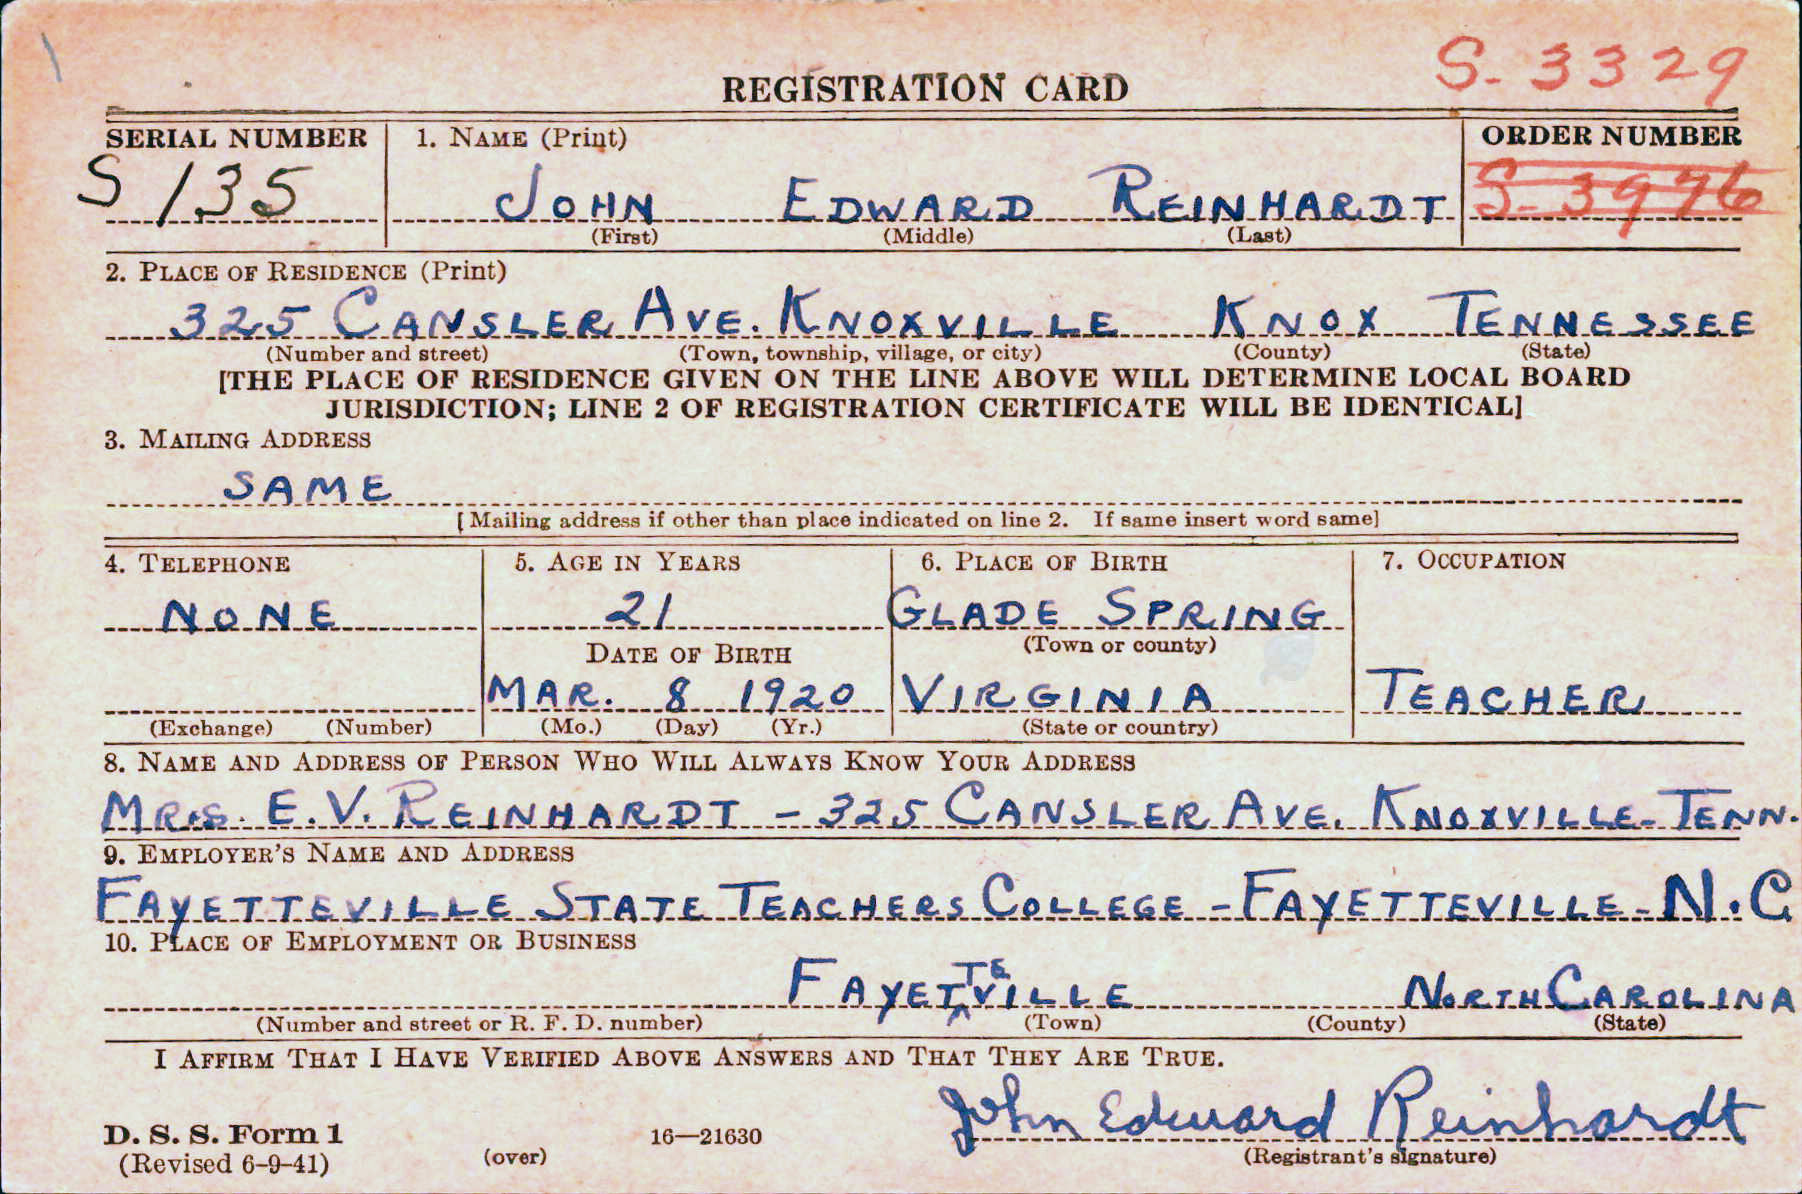 S. 3329
REGISTRATION CARD
SERIAL NUMBER 1. NAME (Print) ORDER NUMBER
S 135 JOHN EDWARD REINHARDT S-3976
(First) (Middle) (Last)
2. PLACE OF RESIDENCE (Print)
325 CANSLER AVE. KNOXVILLE KNOX TENNESSEE
(Number and street) (Town, township, village, or city) (County) (State)
[THE PLACE OF RESIDENCE GIVEN ON THE LINE ABOVE WILL DETERMINE LOCAL BOARD
JURISDICTION; LINE 2 OF REGISTRATION CERTIFICATE WILL BE IDENTICAL]
3. MAILING ADDRESS
SAME
[Mailing address if other than place indicated on line 2. If same insert word same]
4. TELEPHONE 5. AGE IN YEARS 6. PLACE OF BIRTH 7. OCCUPATION
NONE 21 GLADE SPRING
DATE OF BIRTH (Town or county)
MAR. 8 1920 VIRGINIA TEACHER
(Exchange) (Number) (Mo.) (Day) (Yr.) (State or country)
8. NAME AND ADDRESS OF PERSON WHO WILL ALWAYS KNOW YOUR ADDRESS
MRS. E. V. REINHARDT - 325 CANSLER AVE. KNOXVILLE - TENN.
9. EMPLOYER'S NAME AND ADDRESS
FAYETTEVILLE STATE TEACHERS COLLEGE - FAYETTEVILLE - N.C
10. PLACE OF EMPLOYMENT OR BUSINESS
FAYETTEVILLE NORTH CAROLINA
(Number and street or R. F. D. number) (Town) (County) (State)
I AFFIRM THAT I HAVE VERIFIED ABOVE ANSWERS AND THAT THEY ARE TRUE.
John Edward Reinhardt
D. S. S. Form 1 16—21630
(Revised 6-9-41) (over) (Registrant's signature)